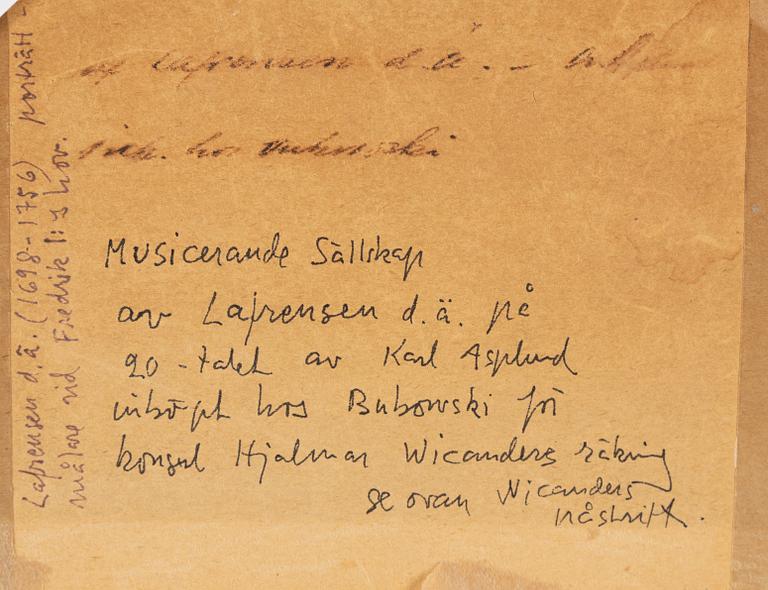 av Lafrensen d.ä. –
ink. hos Bukowski
Musicerande Sällskap
av Lafrensen d.ä. på
20-talet av Karl Asplund
inköpt hos Bukowski för
konsul Hjalmar Wicanders räkning
se ovan Wicanders
påskrift.
Lafrensen d.ä. (1698–1756) porträtt-
målare vid Fredrik I:s hov.